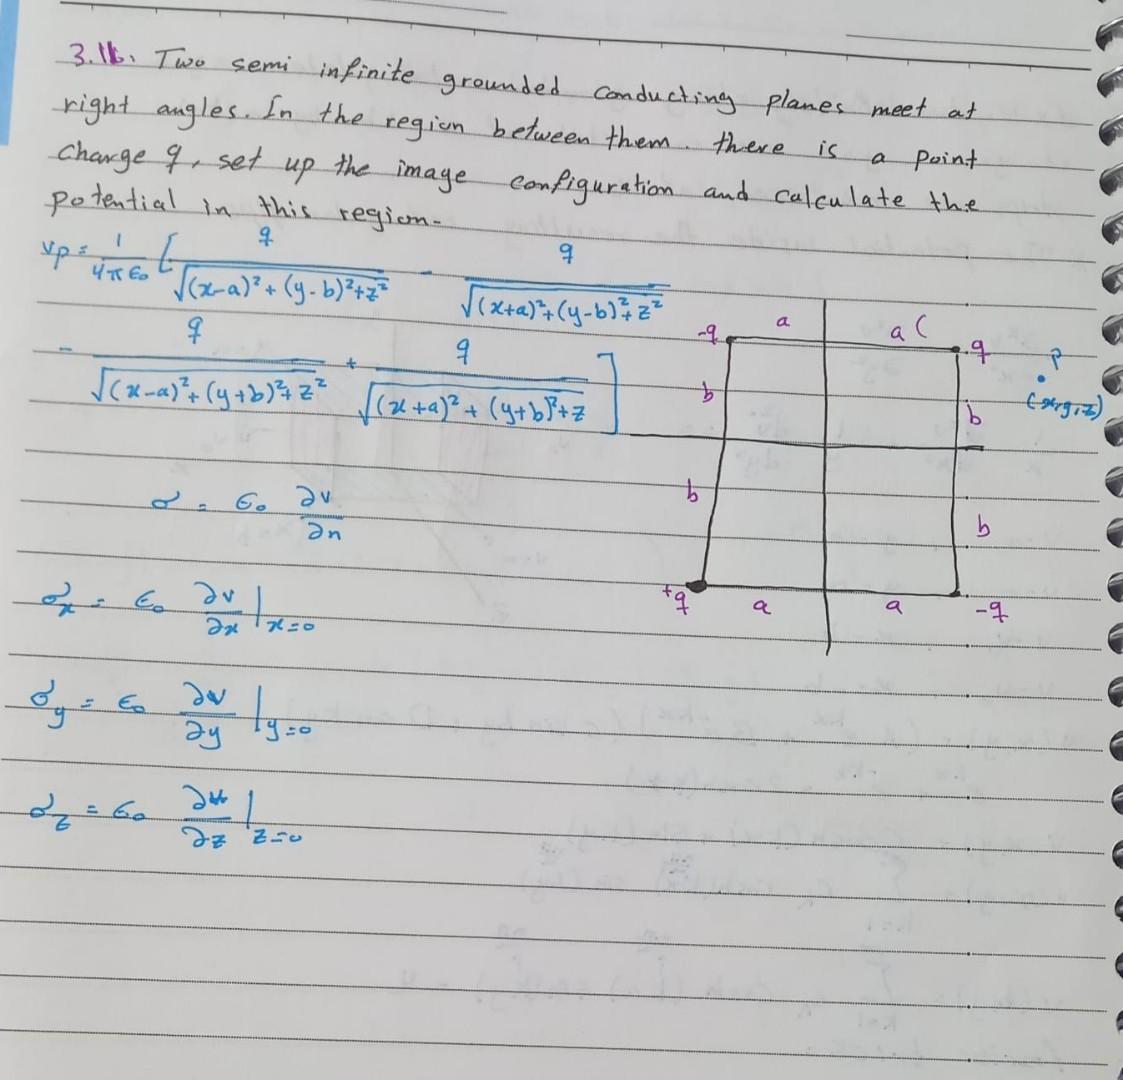 3.16. Two semi infinite grounded conducting planes meet at
right angles. In the region between them. there is a point
charge q, set up the image configuration and calculate the
potential in this region.
Vp = 1/4πϵ₀ [ q/√((x-a)²+(y-b)²+z²) - q/√((x+a)²+(y-b)²+z²)
- q/√((x-a)²+(y+b)²+z²) + q/√((x+a)²+(y+b)²+z) ]
-q a a ( q
P
(x,y,z)
b b
b b
+q a a -q
σ = ϵ₀ ∂v/∂n
σx = ϵ₀ ∂v/∂x |x=0
σy = ϵ₀ ∂v/∂y |y=0
σz = ϵ₀ ∂v/∂z |z=0